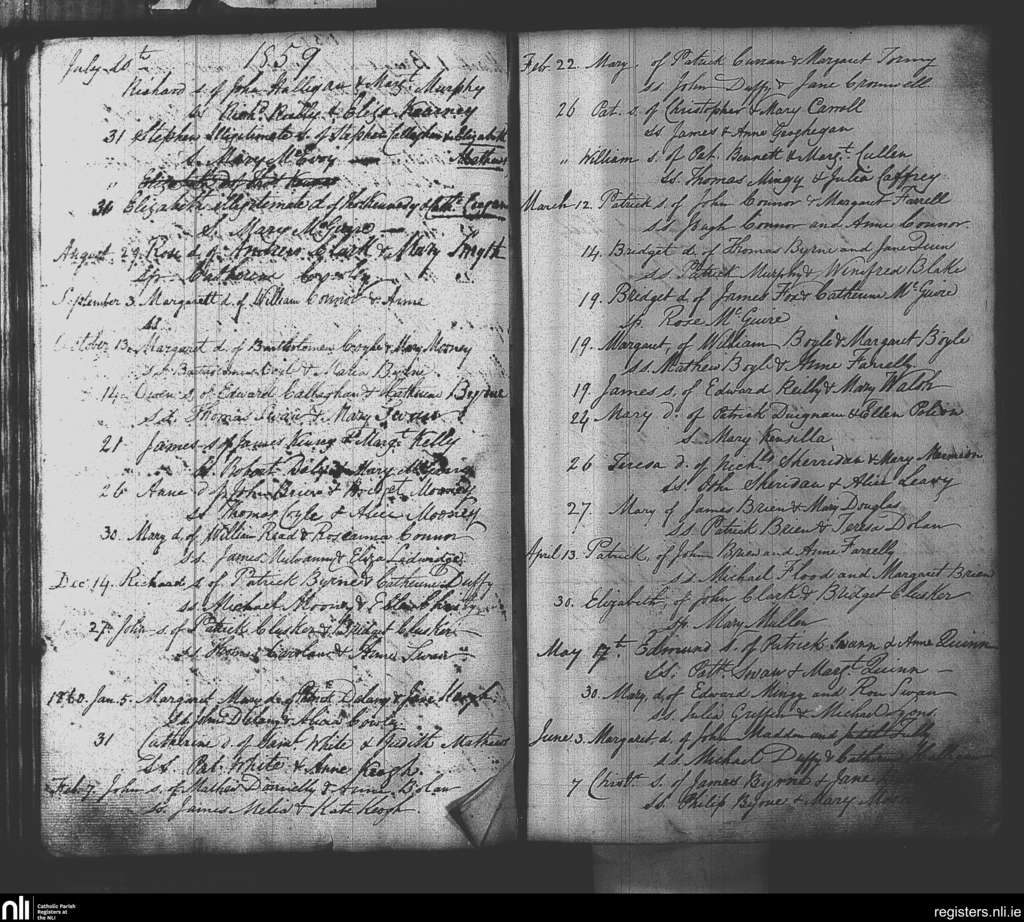 1859
July
Richard s. of John Halligan & Margt. Murphy
ss Richd. & Eliza Kearney
31 Stephen Illigitimate s. of Stephen & Elizabeth
s. Mary McEvoy Mathews
"
31 Elizabeth Illigitimate d. of &
s. Mary McGuire
August 29. Rose d. of Andrew Clark & Mary Smyth
sp. Catherine
September 3. Margarett d. of William Connor & Anne
ss
October 13. Margaret d. of Bartholomew Coyle & Mary Mooney
ss. & Byrne
14 Owen s. of Edward Callaghan & Kathleen Byrne
ss. Thomas Swan & Mary Swan
21 James s. of James & Margt. Kelly
ss. Robert Daly & Mary
26 Anne d. of John Brien & Bridget Mooney
ss Thomas Coyle & Alice Mooney
30. Mary d. of William Read & Roseanna Connor
ss. James & Eliza Ledwidge
Decr. 14. Richard s. of Patrick Byrne & Catherine Duffy
ss. Michael Mooney & Ellen
27. John s. of Patrick Clusker & Bridget Clusker
ss Thomas & Anne Swan
1860. Jan. 5. Margaret Mary d. of Patrick Delany & Jane Keogh
ss. John Delany &
31 Catherine d. of James White & Judith Mathews
ss. Pat. White & Anne Keogh.
Feb. 7. John s. of Mathew Donnelly & Anne
ss. James Melia & Kate Keogh.
Feb. 22 Mary of Patrick Curran & Margaret Tormy
ss John Duffy & Jane Cromwell
26 Pat. s. of Christopher & Mary Carroll
ss James & Anne Geoghegan
" William s. of Pat. Bennett & Margt. Cullen
ss. Thomas Mingy & Julia Caffrey
March 12. Patrick s. of John Connor & Margaret Farrell
ss. Hugh Connor and Anne Connor
14. Bridget d. of Thomas Byrne and Jane
ss. Patrick Murphy & Winifred Blake
19. Bridget d. of James Fox & Catherine McGuire
sp. Rose McGuire
19. Margaret, of William Boyle & Margaret Boyle
ss. Mathew Boyle & Anne Farrelly
19. James s. of Edward Reilly & Mary Walsh
24 Mary d. of Patrick Duignam & Ellen
s. Mary Kensilla
26 Teresa d. of Sherridan & Mary Marmion
ss. John Sheridan & Alice Leavy
27. Mary of James Brien & Mary Douglas
ss. Patrick Brien & Teresa Dolan
April 13. Patrick, of John Brien and Anne Farrelly
ss. Michael Flood and Margaret Brien
30. Elizabeth, of John Clark & Bridget Clusker
Mary Mullen
May 17th. Edmund s. of Patrick Swann & Anne Quinn
ss. Patk. Swan & Margt. Quinn
30. Mary, d. of Edward Mingy and Rose Swan
ss. Julia Griffin & Michael Lyons
June 3. Margaret, d. of John Madden and
ss. Michael Duffy & Catherine
7 Christr. s. of James Byrne & Jane
ss. Philip Byrne & Mary
nli Catholic Parish
Registers at
the NLI
registers.nli.ie